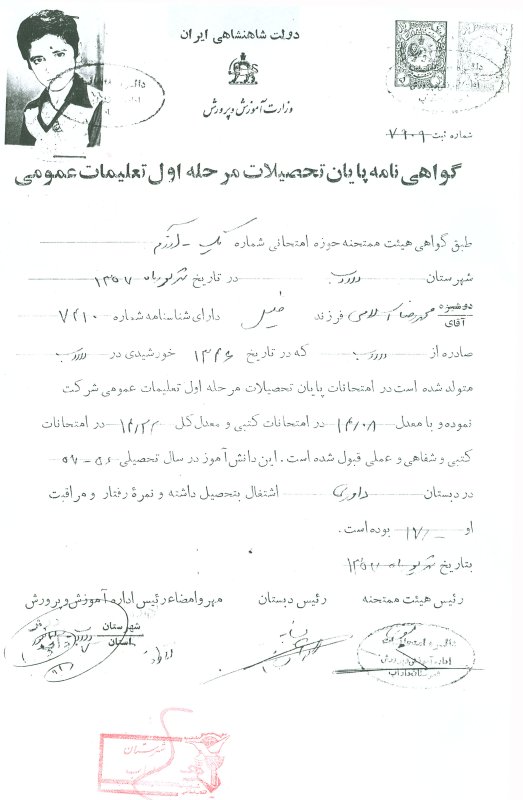 دولت شاهنشاهی ایران
وزارت آموزش و پرورش
شماره ثبت ۷۹۰۹
گواهی نامه پایان تحصیلات مرحله اول تعلیمات عمومی
طبق گواهی هیئت ممتحنه حوزه امتحانی شماره یک
شهرستان داراب در تاریخ شهریور ماه ۱۳۵۷
دوشیزه
آقای محمدرضا اسلامی فرزند خلیل دارای شناسنامه شماره ۷۲۱۰
صادره از داراب که در تاریخ ۱۳۴۶ خورشیدی در داراب
متولد شده است در امتحانات پایان تحصیلات مرحله اول تعلیمات عمومی شرکت
نموده و با معدل ۱۴/۰۸ در امتحانات کتبی و معدل کل ۱۴/۲۲ در امتحانات
کتبی و شفاهی و عملی قبول شده است. این دانش آموز در سال تحصیلی ۵۶-۵۷
در دبستان داوری اشتغال بتحصیل داشته و نمرۀ رفتار و مراقبت
او ۱۷/- بوده است.
بتاریخ شهریور ماه ۱۳۵۷
رئیس هیئت ممتحنه رئیس دبستان مهر و امضاء رئیس اداره آموزش و پرورش
شهرستان
استان
دایره امتحانات
اداره آموزش و پرورش
شهرستان داراب
شهرستان